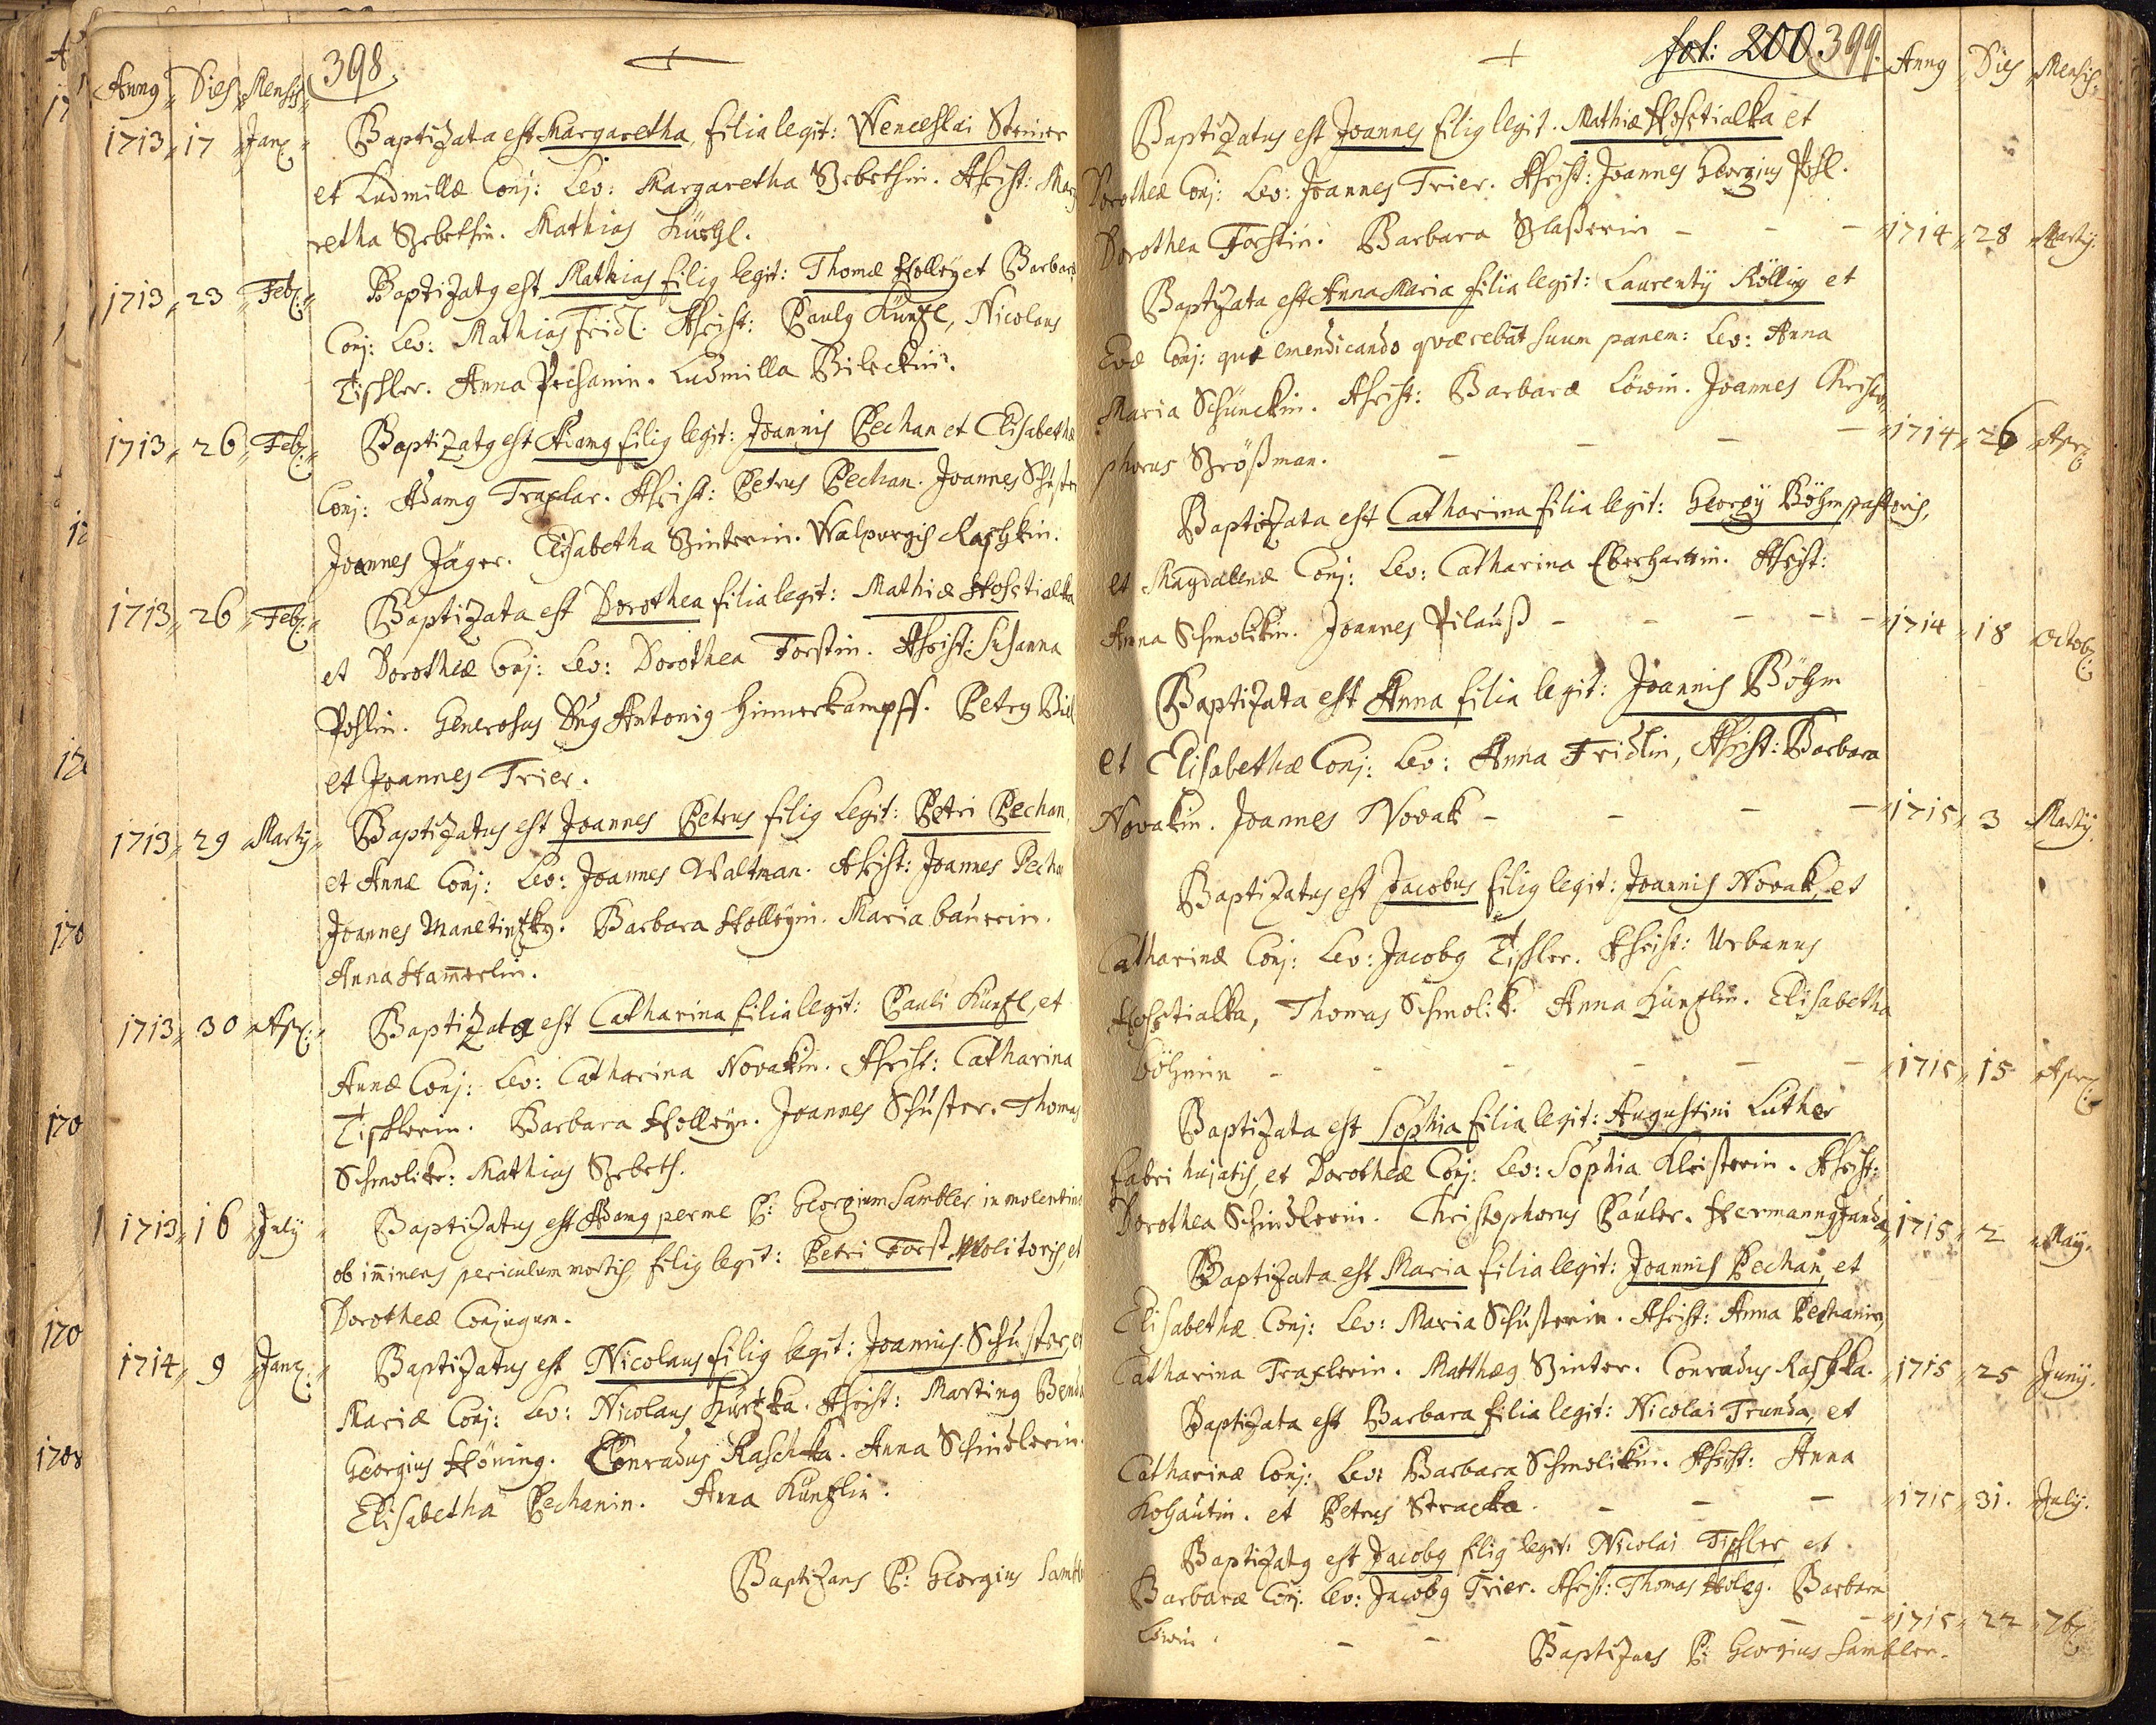 398
Anng Dies Mensis
1713 17 Jan: Baptizata est Margaretha, filia legit: Wenceslai Steiner
et Ludmillæ Conj: Lev: Margaretha Srbethin. Assist: Marg
retha Srbethin. Mathias
1713 23 Feb: Baptizatg est Mathias filig legit: Thomæ Holley et Barbaræ
Conj: Lev: Mathias Fridl. Assist: Paulg Künzl, Nicolaus
Tischler. Anna Pechanin. Ludmilla Bileckin.
1713 26 Feb: Baptizatg est Adamg filig legit: Joannis Pechan et Elisabethæ
Conj: Adamg Traxlar. Assist: Petrus Pechan. Joannes Schuster
Joannes Jäger. Elisabetha Binterin. Walpurgis Raschkin.
1713 26 Feb: Baptizata est Dorothea filia legit: Mathiæ Hostialka
et Dorotheæ Conj: Lev: Dorothea Forstin. Assist: Susanna
Pohlin. Generosus Dng Antonig Hinnerkampff. Petrg
et Joannes Trier.
1713 29 Martij Baptizatus est Joannes Petrus filig legit: Petri Pechan,
et Annæ Conj: Lev: Joannes Waltman. Assist: Joannes Pechan
Joannes Manetinsky. Barbara Holleyin. Maria bäuerin.
Anna Ham̄erlin.
1713 30 Apr: Baptizata est Catharina filia legit: Pauli Künzl, et
Annæ Conj: Lev: Catharina Novakin. Assist: Catharina
Tischlerin. Barbara Holleyn. Joannes Schuster. Thomas
Schmolik: Mathias Srbeth.
1713 16 July Baptizatus est Adamg per me P: Georgium Sambler in molentina
ob im̄inens periculum mortis, filig legit: Petri Forst Molitoris, et
Dorotheæ Conjugum.
1714 9 Jan: Baptizatus est Nicolaus filig legit: Joannis Schuster, et
Mariæ Conj: Lev: Nicolaus Kurzka. Assist: Marting Benda
Georgius Höning. Conradus Raschka. Anna Schindlerin.
Elisabetha Pechanin. Anna Künzlin.
Baptizans P: Georgius Sambler
fol: 200 399.
Anng Dies Mensis
Baptizatus est Joannes filig legit. Mathiæ Hostialka et
Dorotheæ Conj: Lev: Joannes Trier. Assist: Joannes Georgius Pohl.
Dorothea Forstin. Barbara Slaßerin - - - 1714 28 Martij.
Baptizata est Anna Maria filia legit: Laurentij Röllig et
Evæ Conj: quæ emendicando quærebat suum panem: Lev: Anna
Maria Schünckin. Assist: Barbaræ Löwin. Joannes Christo
phorus Größman. - - - - 1714 26 Apr:
Baptizata est Catharina filia legit: Georgij Böhm pastoris,
et Magdalenæ Conj: Lev: Catharina Eberhartin. Assist:
Anna Schmolikin. Joannes Pilauß - - - - 1714 18 Octob:
Baptizata est Anna filia legit: Joannis Böhm
et Elisabethæ Conj: Lev: Anna Fridlin, Assist: Barbara
Novakin. Joannes Novak - - - - 1715 3 Martij.
Baptizatus est Jacobus filig legit: Joannis Novak, et
Catharinæ Conj: Lev: Jacobg Tischler. Assist: Urbanus
Hostialka, Thomas Schmolik. Anna Künzlin. Elisabetha
Böhmin - - - - - 1715 15 Apr:
Baptizata est Sophia filia legit: Augustini Luther
fabri hujatis, et Dorotheæ Conj: Lev: Sophia Kleisterin. Assist:
Dorothea Schindlerin. Christophorus Päuler. Hermanng Janda 1715 2 Maij.
Baptizata est Maria filia legit: Joannis Pechan, et
Elisabethæ Conj: Lev: Maria Schusterin. Assist: Anna Pechanin,
Catharina Traxlerin. Matthæg Binter. Conradus Raschka. 1715 25 Junij.
Baptizata est Barbara filia legit: Nicolai Trunda, et
Catharinæ Conj: Lev: Barbara Schmolikin. Assist: Anna
Kohautin. et Petrus Stracka. - - - 1715 31. July.
Baptizatg est Jacobg filig legit: Nicolai Tischler et
Barbaræ Conj: Lev: Jacobg Trier. Assist: Thomas Holeg. Barbara
Löwin. - - - 1715 22 7b:
Baptizans P: Georgius Sambler.